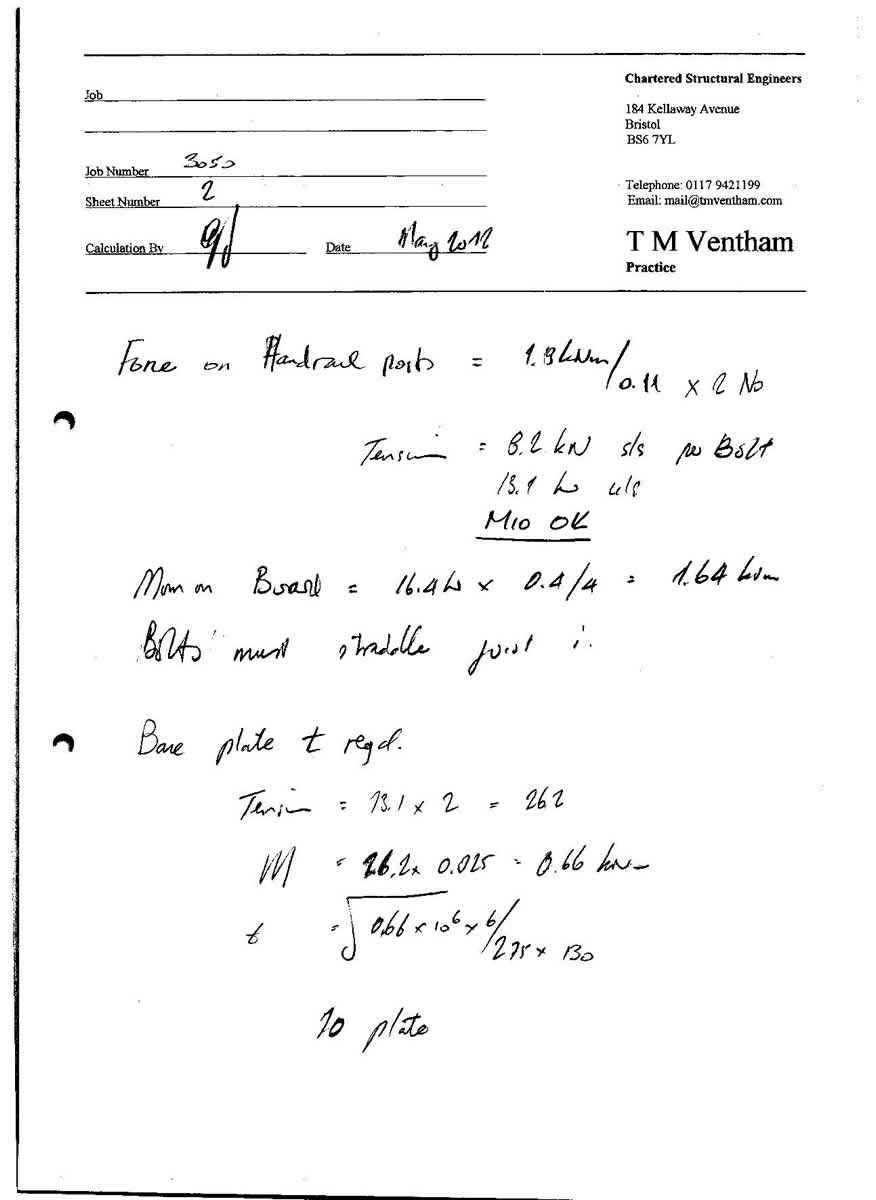 Chartered Structural Engineers
Job
184 Kellaway Avenue
Bristol
BS6 7YL
Job Number 3050
Sheet Number 2
Telephone: 0117 9421199
Email: mail@tmventham.com
Calculation By
Date May 2012
T M Ventham
Practice
Force on Handrail posts = 1.8 kNm/0.11 x 2 No
Tension = 8.2 kN s/s per Bolt
13.1 kN u/s
M10 OK
Mom on Board = 16.4 kN x 0.4/4 = 1.64 kNm
Bolts must straddle joist
Base plate t reqd.
Tension = 13.1 x 2 = 262
M = 26.2 x 0.025 = 0.66 kNm
t = √0.66 x 10⁶ x 6/275 x 130
10 plate